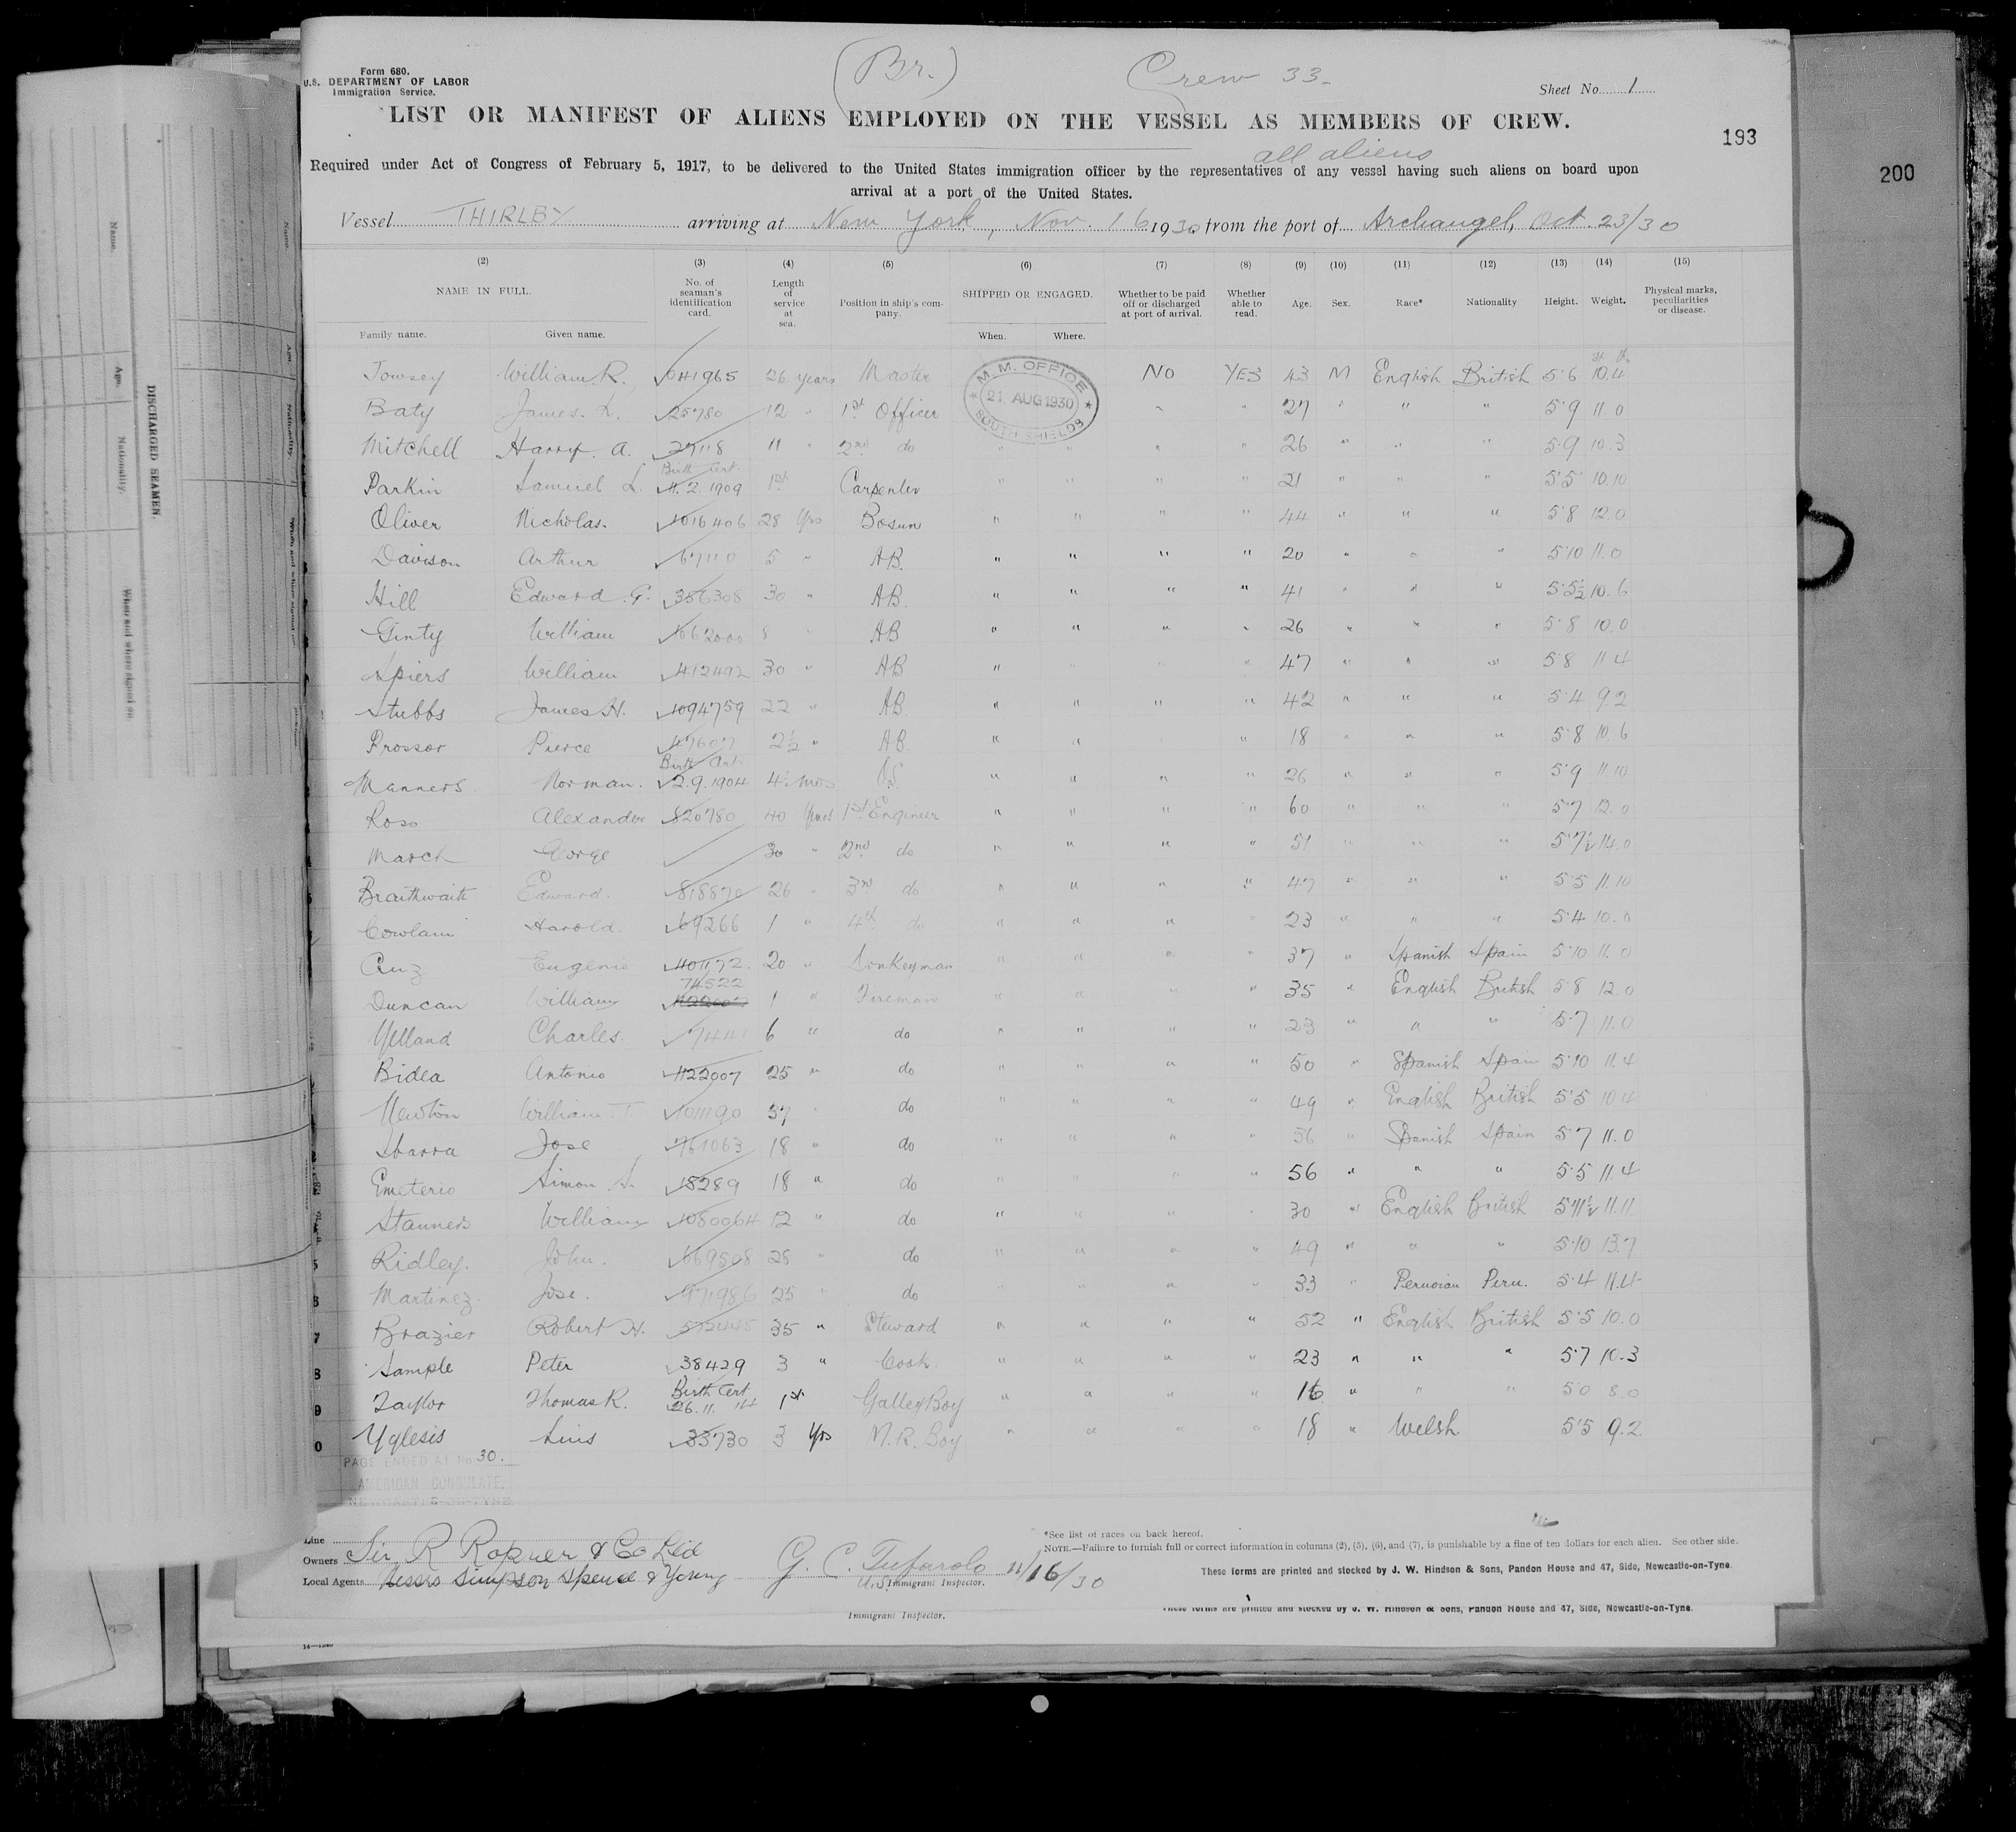 Form 680.
U.S. DEPARTMENT OF LABOR
Immigration Service.
(Br.)
Crew 33.
Sheet No. 1
LIST OR MANIFEST OF ALIENS EMPLOYED ON THE VESSEL AS MEMBERS OF CREW.
193
200
all aliens
Required under Act of Congress of February 5, 1917, to be delivered to the United States immigration officer by the representatives of any vessel having such aliens on board upon
arrival at a port of the United States.
Vessel THIRLBY arriving at New York, Nov. 16 1930 from the port of Archangel, Oct. 23/30
(2) (3) (4) (5) (6) (7) (8) (9) (10) (11) (12) (13) (14) (15)
NAME IN FULL. No. of seaman's identification card. Length of service at sea. Position in ship's company. SHIPPED OR ENGAGED. Whether to be paid off or discharged at port of arrival. Whether able to read. Age. Sex. Race* Nationality Height. Weight. Physical marks, peculiarities or disease.
Family name. Given name. When. Where.
M.M. OFFICE
21 AUG 1930
SOUTH SHIELDS
st. lb.
Towsey William. R. 641965 26 years Master NO YES 43 M English British 5·6 10.4
Baty James. L. 25780 12 " 1st Officer " " 27 " " " 5·9 11.0
Mitchell Harry. A. 27118 11 " 2nd do " " " " 26 " " " 5·9 10.3
Birth Cert.
Parkin Samuel L. 11.2.1909 1st Carpenter " " " " 21 " " " 5·5 10.10
Oliver Nicholas. 1016406 28 Yrs Bosun " " " " 44 " " " 5·8 12.0
Davison Arthur 67110 5 " AB. " " " " 20 " " " 5·10 11.0
Hill Edward. G. 356308 30 " AB. " " " " 41 " " " 5·5½ 10.6
Ginty William 1062000 8 " AB " " " " 26 " " " 5·8 10.0
Spiers William 412492 30 " AB " " " " 47 " " " 5·8 11.4
Stubbs James H. 1094759 22 " AB. " " " " 42 " " " 5·4 9.2
Prossor Pierce 47607 2½ " AB. " " " 18 " " " 5·8 10.6
Birth Cert.
Manners Norman. 2.9.1904 4½ mos " " " " 26 " " " 5·9 11.10
Ross Alexander 820780 40 Years 1st Engineer " " " " 60 " " " 5·7 12.0
March George 30 " 2nd do " " " " 51 " " " 5·7½ 14.0
Braithwaite Edward. 818870 26 " 3rd do " " " " 47 " " " 5·5 11.10
Cowlam Harold. 69266 1 " 4th do " " " " 23 " " " 5·4 10.0
Cruz Eugenio 401172. 20 " Donkeyman " " " " 37 " Spanish Spain 5·10 11.0
74522
Duncan William 1122007 1 " Fireman " " " " 35 " English British 5·8 12.0
Yelland Charles. 6 " do " " " " 23 " " " 5·7 11.0
Bidea Antonio 1122007 25 " do " " " " 50 " Spanish Spain 5·10 11.4
Newton William T. 1011190 37 " do " " " " 49 " English British 5·5 10.4
Ibarra Jose 761063 18 " do " " " " 56 " Spanish Spain 5·7 11.0
Emeterio Simon. S. 15289 18 " do " " " " 56 " " " 5·5 11.4
Stanners William 1080064 12 " do " " " " 30 " English British 5·11½ 11.11
Ridley. John. 669508 28 " do " " " " 49 " " " 5·10 13.7
Martinez. Jose. 971986 25 " do " " " " 33 " Peruvian Peru. 5·4 11.4
Brazier Robert H. 35 " Steward " " " " 52 " English British 5·5 10.0
Sample Peter 38429 3 " Cook. " " " " 23 " " " 5·7 10.3
Birth Cert
Taylor Thomas R. 26.11.14 1st Galley Boy " " " " 16 " " " 5·0 8.0
Yglesis Luis 33730 3 Yrs M.R. Boy " " " " 18 " Welsh 5·5 9.2
PAGE ENDED AT No 30.
AMERICAN CONSULATE,
NEWCASTLE-ON-TYNE
Line
Owners Sir R Ropner & Co Ltd
Local Agents Messrs Simpson Spence & Young
G. C. Tufarolo 11/16/30
U.S. Immigrant Inspector.
*See list of races on back hereof.
NOTE.—Failure to furnish full or correct information in columns (2), (5), (6), and (7), is punishable by a fine of ten dollars for each alien. See other side.
These forms are printed and stocked by J. W. Hindson & Sons, Pandon House and 47, Side, Newcastle-on-Tyne.
Immigrant Inspector.
These forms are printed and stocked by J. W. Hindson & Sons, Pandon House and 47, Side, Newcastle-on-Tyne.
DISCHARGED SEAMEN.
Name.
Age.
Nationality.
When and where signed on